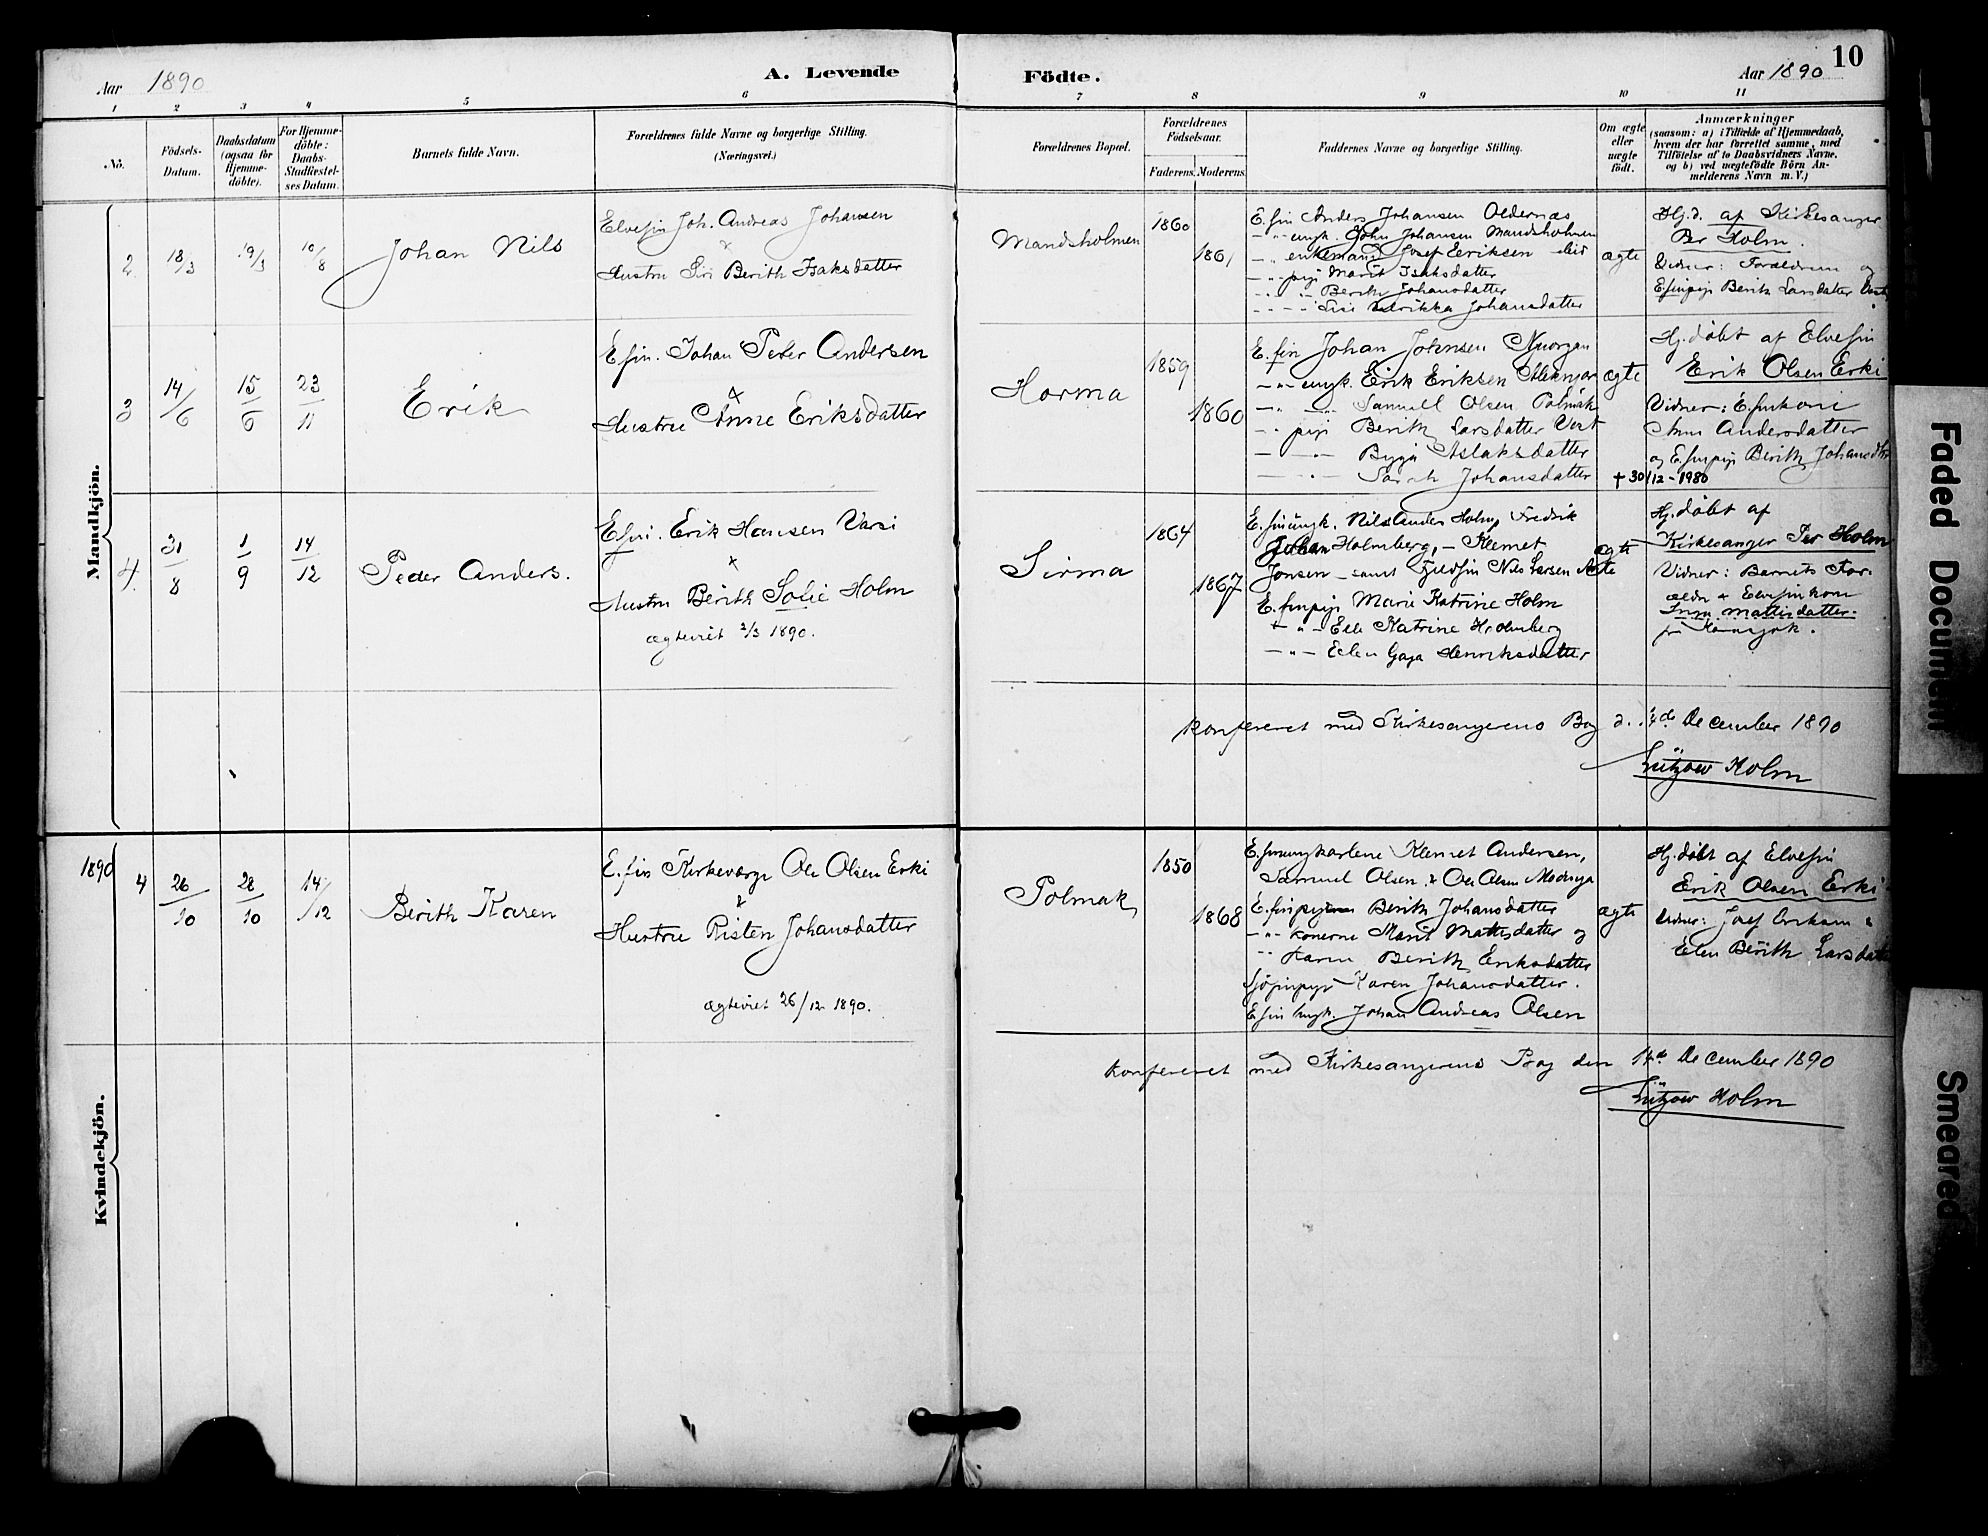 Aar 1890
A. Levende
Födte.
Aar 1890
10
1 2 3 4 5 6 7 8 9 10 11
No.
Födsels-
Datum.
Daabsdatum
(ogsaa for
Hjemme-
döbte).
For Hjemme-
döbte:
Daabs-
Stadfæstel-
ses Datum.
Barnets fulde Navn.
Forældrenes fulde Navne og borgerlige Stilling.
(Næringsvei.)
Forældrenes Bopæl.
Forældrenes
Födselsaar.
Faderens. Moderens.
Faddernes Navne og borgerlige Stilling.
Om ægte
eller
uægte
födt.
Anmærkninger
(saasom: a) i Tilfælde af Hjemmedaab,
hvem der har forrettet samme, med
Tilföielse af to Daabsvidners Navne,
og b) ved uægtefödte Börn An-
melderens Navn m. V.)
Mandkjön.
2
18/3
19/3
10/8
Johan Nils
Elvefin Joh. Andreas Johansen
x
Hustru Siri Berith Isaksdatter
Mandsholmen
1860
1861
E. fin Anders Johansen Oldernæs
- " - ungk. John Johansen Mandsholmen
- " enkemand Josef Eeriksen
- " pige Marit Isaksdatter
- " - " Berith Johansdatter
- " - " Sisi Ulrikka Johansdatter
ægte
Hj.d. af Kirkesanger
Per Holm.
Vidner: Forældrene og
E.finpige Berith Larsdatter
3
14/6
15/6
23/11
Erik
E fin. Johan Peder Andersen
x
Hustru Anne Eriksdatter
Horma
1859
1860
E. fin Johan Johnsen Njuorgan
- " - ungk. Erik Eriksen
- " - Samuel Olsen Polmak
- " pige Berith Larsdatter Vest
- " - Bigga Aslaksdatter
- " - Sarah Johansdatter
ægte
Hj. döbt af Elvefin
Erik Olsen Erki
Vidner: E.finkone
Anne Andersdatter
og E.finpige Berith Johansdtr
+ 30/12-1980
4.
31/8
1/9
14/12
Peder Anders.
E.fin. Erik Hansen Varsi
x
Hustru Berith Sofie Holm
ægteviet 2/3 1890.
Sirma
1864
1867
E. finungk. Nils Ander Holm, Fredrik
Johan Holmberg, - Klemet
Jonsen - samt Fjeldfin Nils Larsen
E. finpige Marie Katrine Holm
- " - Elle Katrine Holmberg
- " - Ellen Gaja Henriksdatter
ægte
Hj. döbt af
Kirkesanger Per Holm
Vidner: Barnets For-
ældre + Elvefinkone
Inga Mattisdatter.
fr Karasjok.
Konfereret med Kirkesangerens Bog d. 14de December 1890
Lützow Holm
Kvindekjön.
1890
4
26/10
28/10
14/12
Berith Karen
E. fin Kirkeværge Ole Olsen Erki
x
Hustru Risten Johansdatter
ægteviet 26/12 1890.
Polmak
1850
1868
E. finungkarlene Klemet Andersen,
Samuel Olsen. & Ole Olsen
E. finpigen Berith Johansdatter
- " - konerne Marit Mattisdatter og
- " Karen Berith Eriksdatter
Sjöfinpige Karen Johansdatter.
E. fin ungk. Johan Andreas Olsen
ægte
Hj. döbt af Elvefin
Erik Olsen Erki
Vidner: Josef Eriksen &
Elen Berith Larsdatter
Konfereret med Kirkesangerens Bog den 14de December 1890
Lützow Holm
Faded Document
Smeared